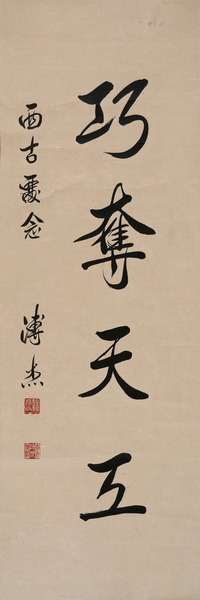 巧奪天工
西古灵念
溥杰